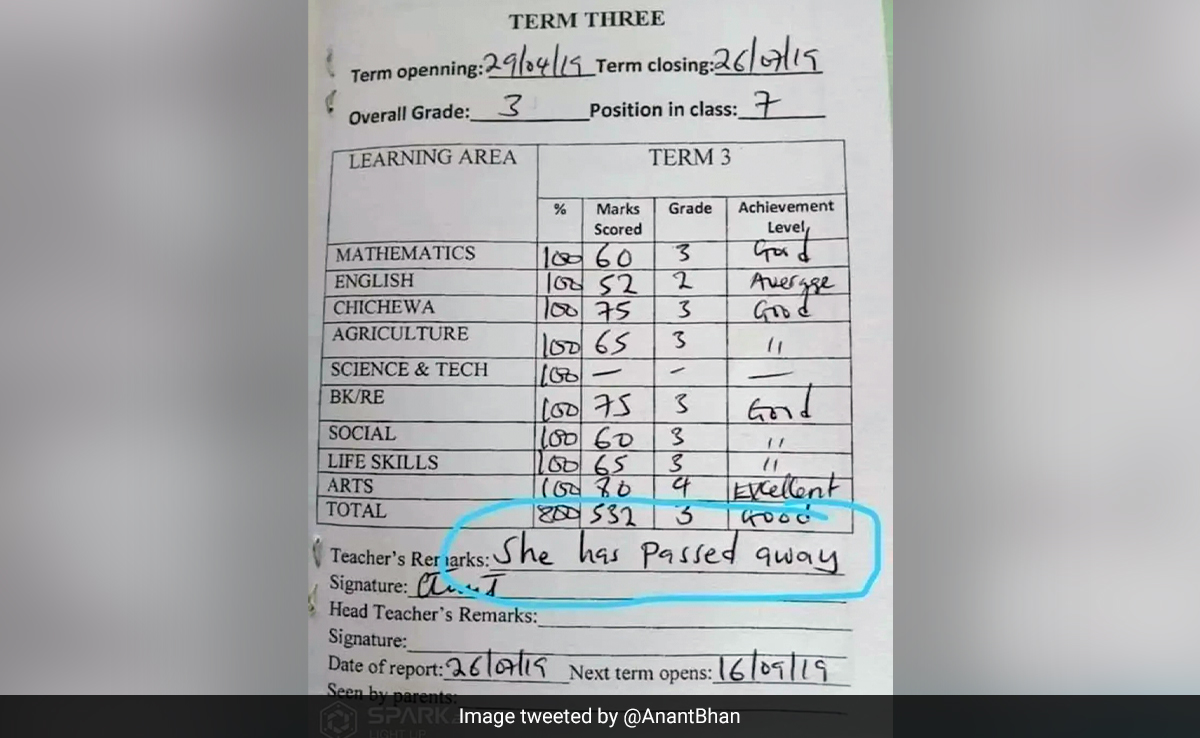 TERM THREE
Term openning: 29/04/19 Term closing: 26/07/19
Overall Grade: 3 Position in class: 7
LEARNING AREA TERM 3
% Marks Scored Grade Achievement Level
MATHEMATICS 100 60 3 Good
ENGLISH 100 52 2 Average
CHICHEWA 100 75 3 Good
AGRICULTURE 100 65 3 "
SCIENCE & TECH 100 — - —
BK/RE 100 75 3 Good
SOCIAL 100 60 3 "
LIFE SKILLS 100 65 3 "
ARTS 100 80 4 Excellent
TOTAL 800 532 3 Good
Teacher's Remarks: She has passed away
Signature:
Head Teacher's Remarks:
Signature:
Date of report: 26/07/19 Next term opens: 16/09/19
Seen by parents:
SPARK
Image tweeted by @AnantBhan